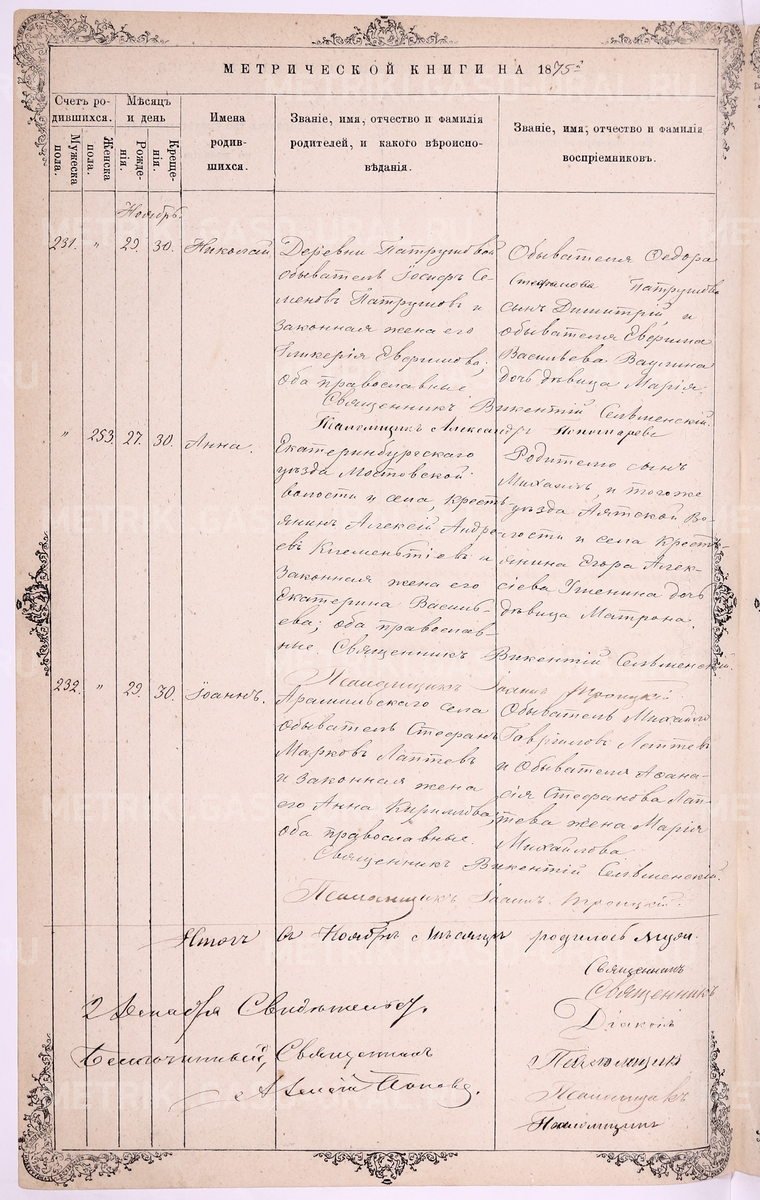 МЕТРИЧЕСКОЙ КНИГИ НА 1875
Счетъ ро-
дившихся.
Мужеска
пола.
Женска
пола.
Мѣсяцъ
и день
Рожде-
нія.
Креще-
нія.
Имена
родив-
шихся.
Званіе, имя, отчество и фамилія
родителей, и какого вѣроиспо-
вѣданія.
Званіе, имя, отчество и фамилія
воспріемниковъ.
Ноябрь.
231. " 29. 30. Николай
Деревни Патрушовой
обыватель Іосифъ Се-
меновъ Патрушовъ и
законная жена его
Гликерія Евфимова,
оба православные
Обывателя Ѳедора
Стефанова Патрушова
сынъ Димитрій, и
обывателя
Васильева Ваулина
дочь дѣвица Марія.
Священникъ Викентій
Александръ Пономаревъ
" 253. 27. 30. Анна.
Екатеринбургскаго
уѣзда Мостовской
волости и села, кресть-
янинъ Алексій Андре-
евъ Клементіевъ и
законная жена его
Екатерина Василь-
ева; оба православ-
ные.
Родителю сынъ
Михаилъ, и тогоже
уѣзда Аятской Во-
лости и села кресть-
янина Егора Алек-
сіева дочь
дѣвица Матрона.
Священникъ Викентій
Псаломщикъ Іоаннъ Троицкій.
232. " 29. 30. Іоаннъ.
Арамильскаго села
обыватель Стефанъ
Марковъ Лаптевъ
и законная жена
его Анна Кирилова,
оба православные.
Обыватель Михаилъ
Гавріиловъ Лаптевъ
и обывателя Аѳана-
сія Стефанова Лап-
тева жена Марія
Михайлова
Священникъ Викентій
Псаломщикъ Іоаннъ Троицкій.
Итого въ Ноябрѣ мѣсяцѣ родилось муж.
Священникъ
Священникъ
2 Декабря Свидѣтельст.
Діаконъ
Благочинный, Священникъ
Псаломщикъ
Алексій Поповъ.
Псаломщикъ
Псаломщикъ